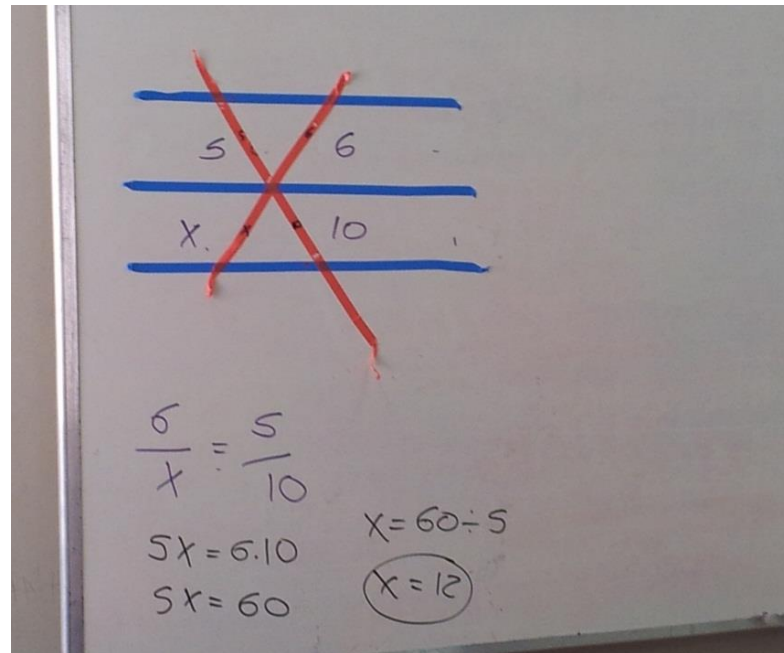 5 6
X 10
6/X = 5/10
5X = 6.10
5X = 60
X = 60÷5
X = 12